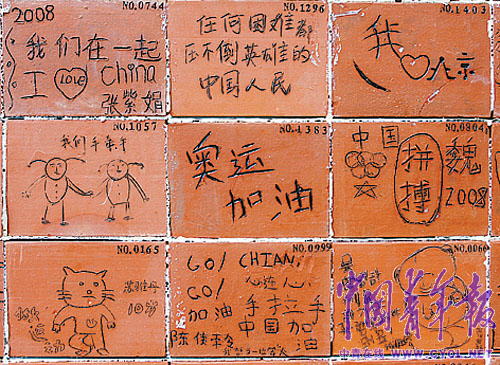 NO.0744
2008
我们在一起
I LOVE China
张紫娟
NO.1296
任何困难都
压不倒英雄的
中国人民
NO.1403
我
北京
NO.1057
我们手牵手
NO.1383
奥运
加油
NO.0804
中国
拼搏
魏
2008
NO.0165
10岁
NO.0999
GO! CHIAN!
GO! 心连心
加油 手拉手
中国加油
陈佳
NO.0060
中国青年报
中青在线 WWW.CYOL.NET